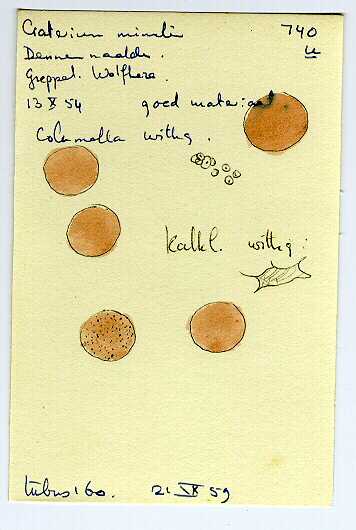 Craterium minutum 740
Dennennaalden. u
Greppel. Wolfheze.
13 X 54 goed materiaal
Columella withg.
kalkl. withg:
tubus 160. 21 IX 59